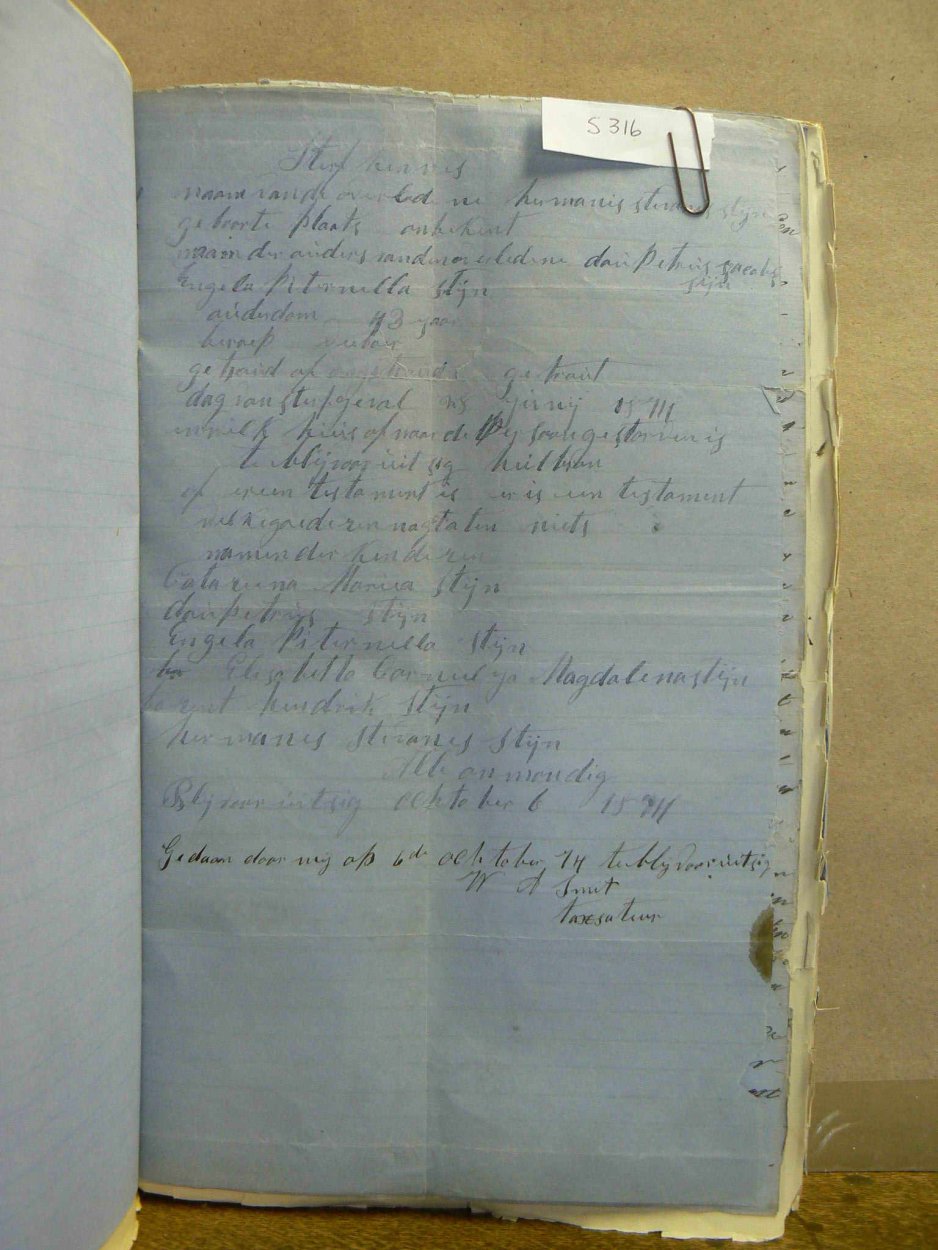 S316
Sterf kennis
naam vande overledene hermanis stevanes stijn
geboorte plaats onbekent
naam der ouders vanden overledene daupetrus jacobs
stijn
Engela Piternella Stijn
ouderdom 43 yaar
beroep veeboer
getroud of ongetroud getrout
dag van sterfgeval 1874
in welk huis of waar de Persoon gestorven is
te blijvooruitsig heilbron
of er een testament is er is een testament
welke goederen nagtaten niets
namen der kinderen
Catarina Maria Stijn
daupetrus Stijn
Engela Piternella Stijn
Elisabetta Cornelya Magdalena stijn
barent hendrik Stijn
hermanes stevanes Stijn
Alle onmondig
Blyvooruitsig ocktober 6 1874
Gedaan door my op 6de ocktober 74 te blyvooruitsig
W A Smit
taxsateur